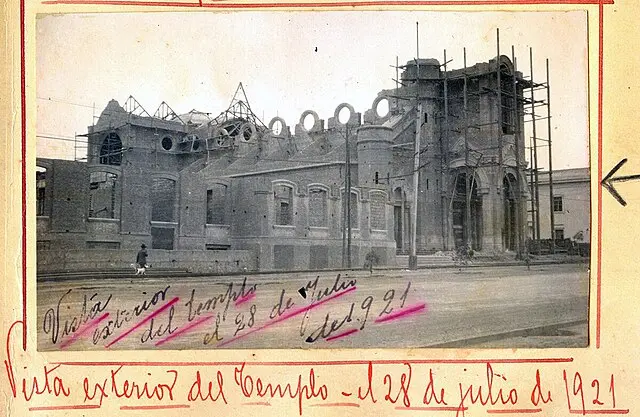 Vista
exterior
del templo
el 28 de Julio
de 1921
Vista exterior del Templo - el 28 de julio de 1921